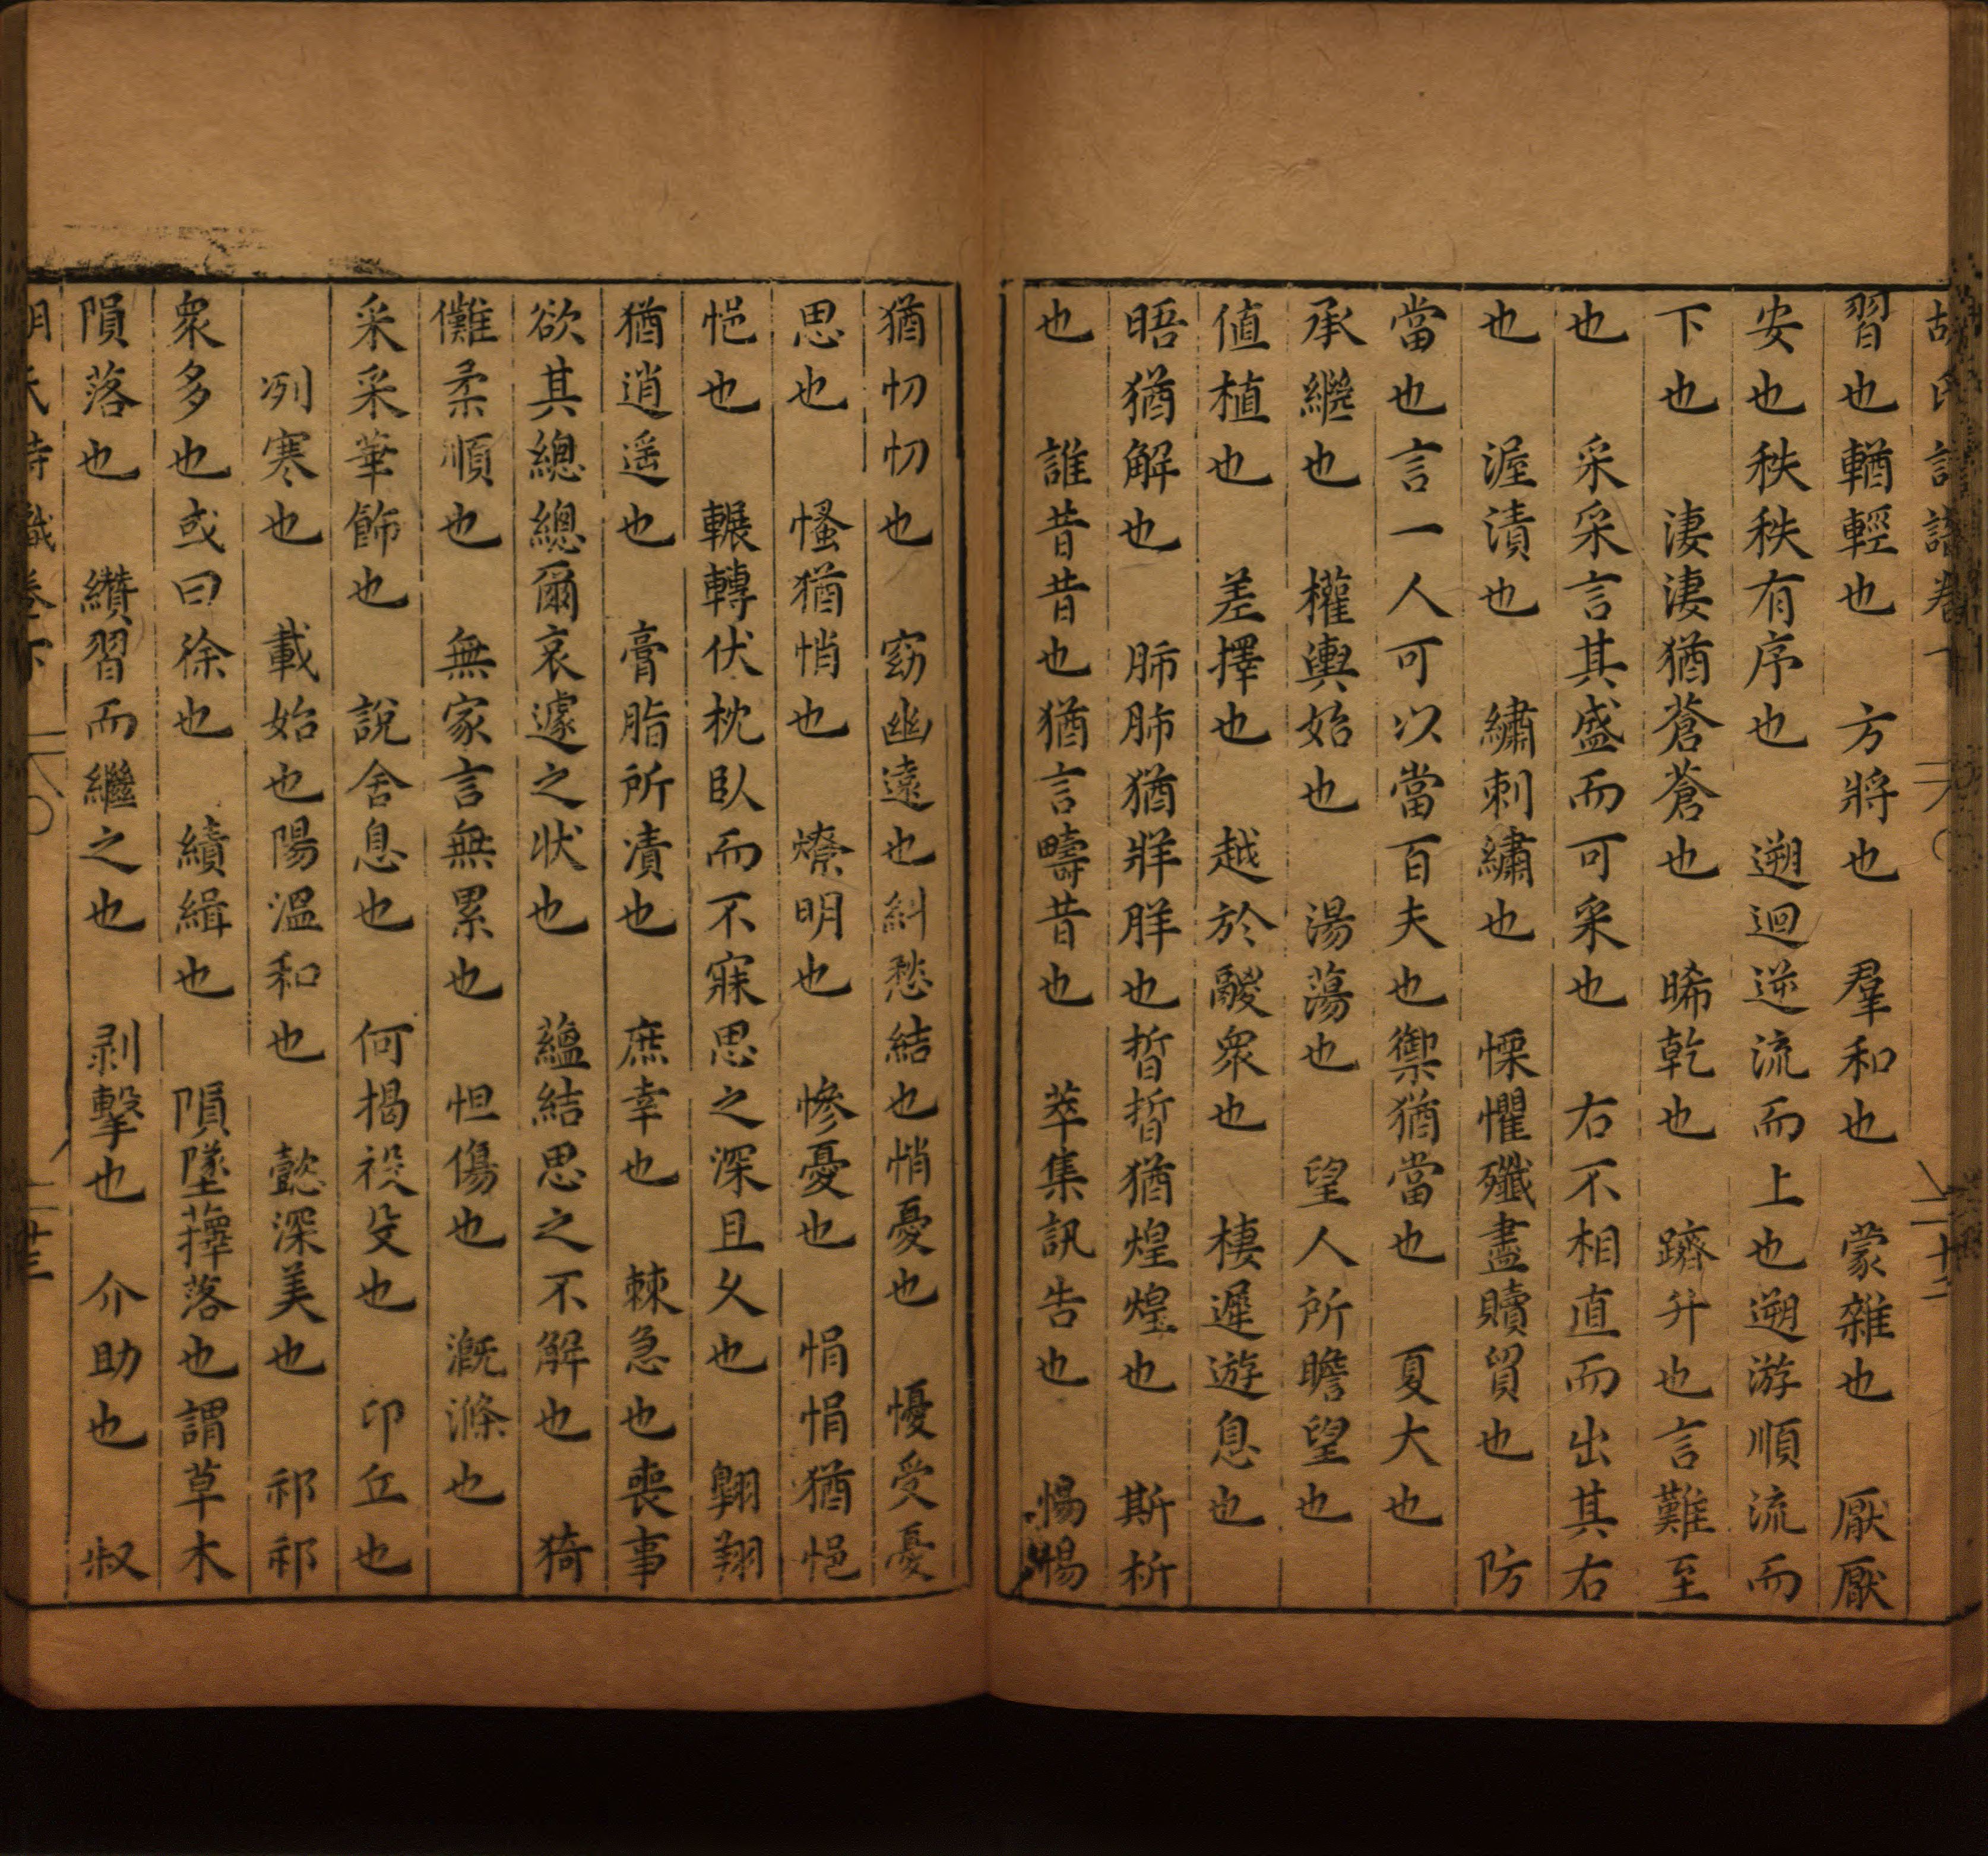 習也輶輕也　方將也　羣和也　蒙雜也　厭厭
安也秩秩有序也　遡迴逆流而上也遡游順流而
下也　淒淒猶蒼蒼也　晞乾也　躋升也言難至
也　采采言其盛而可采也　右不相直而出其右
也　渥漬也　繡刺繡也　慄懼殲盡贖貿也　防
當也言一人可以當百夫也禦猶當也　夏大也
承繼也　權輿始也　湯蕩也　望人所瞻望也
値植也　差擇也　越於鬷衆也　棲遲遊息也
晤猶解也　肺肺猶牂牂也晢晢猶煌煌也　斯析
也　誰昔昔也猶言疇昔也　萃集訊告也　惕惕
猶忉忉也　窈幽遠也糾愁結也悄憂也　懮受憂
思也　慅猶悄也　燎明也　慘憂也　悁悁猶悒
悒也　輾轉伏枕臥而不寐思之深且乆也　翺翔
猶逍遥也　膏脂所漬也　庶幸也　棘急也喪事
欲其總總爾哀遽之狀也　蘊結思之不解也　猗
儺柔順也　無家言無累也　怛傷也　漑滌也
采采華飾也　說舍息也　何揭祋殳也　卭丘也
洌寒也　載始也陽溫和也　懿深美也　祁祁
衆多也或曰徐也　績緝也　隕墜蘀落也謂草木
隕落也　纘習而繼之也　剥擊也　介助也　叔